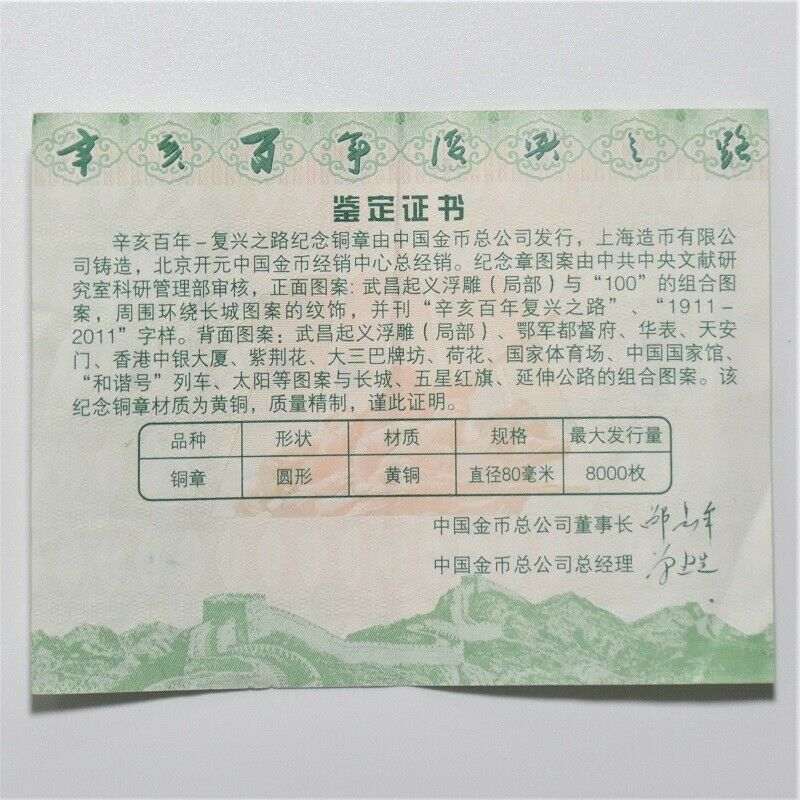 辛亥百年复兴之路
鉴定证书
辛亥百年-复兴之路纪念铜章由中国金币总公司发行，上海造币有限公
司铸造，北京开元中国金币经销中心总经销。纪念章图案由中共中央文献研
究室科研管理部审核，正面图案：武昌起义浮雕（局部）与“100”的组合图
案，周围环绕长城图案的纹饰，并刊“辛亥百年复兴之路”、“1911-
2011”字样。背面图案：武昌起义浮雕（局部）、鄂军都督府、华表、天安
门、香港中银大厦、紫荆花、大三巴牌坊、荷花、国家体育场、中国国家馆、
“和谐号”列车、太阳等图案与长城、五星红旗、延伸公路的组合图案。该
纪念铜章材质为黄铜，质量精制，谨此证明。
品种 形状 材质 规格 最大发行量
铜章 圆形 黄铜 直径80毫米 8000枚
中国金币总公司董事长
中国金币总公司总经理